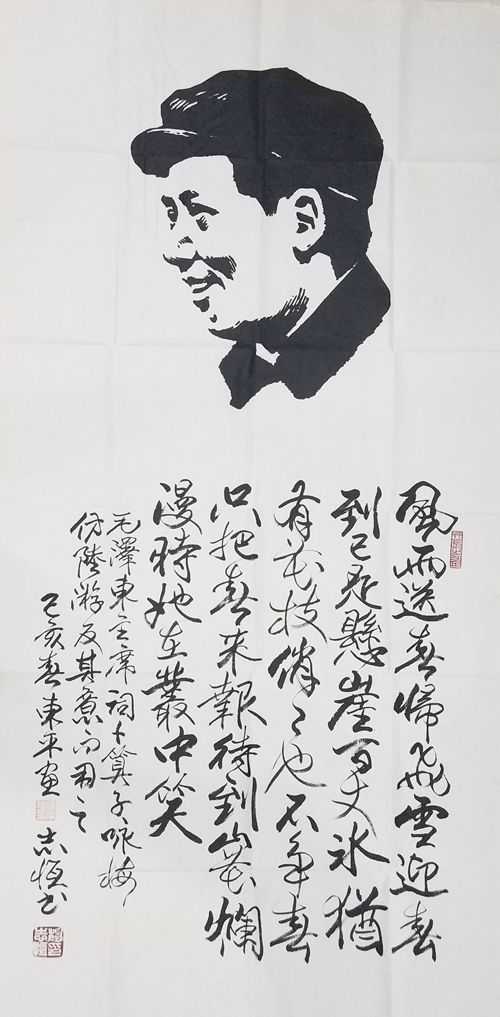 風雨送春帰飛雪迎春
到已是懸崖百丈冰猶
有花枝俏〻也不争春
只把春来報待到山花爛
漫時她在叢中笑
毛澤東主席詞卜算子咏梅
仿陸游反其意而用之
己亥春東平画
志恒书